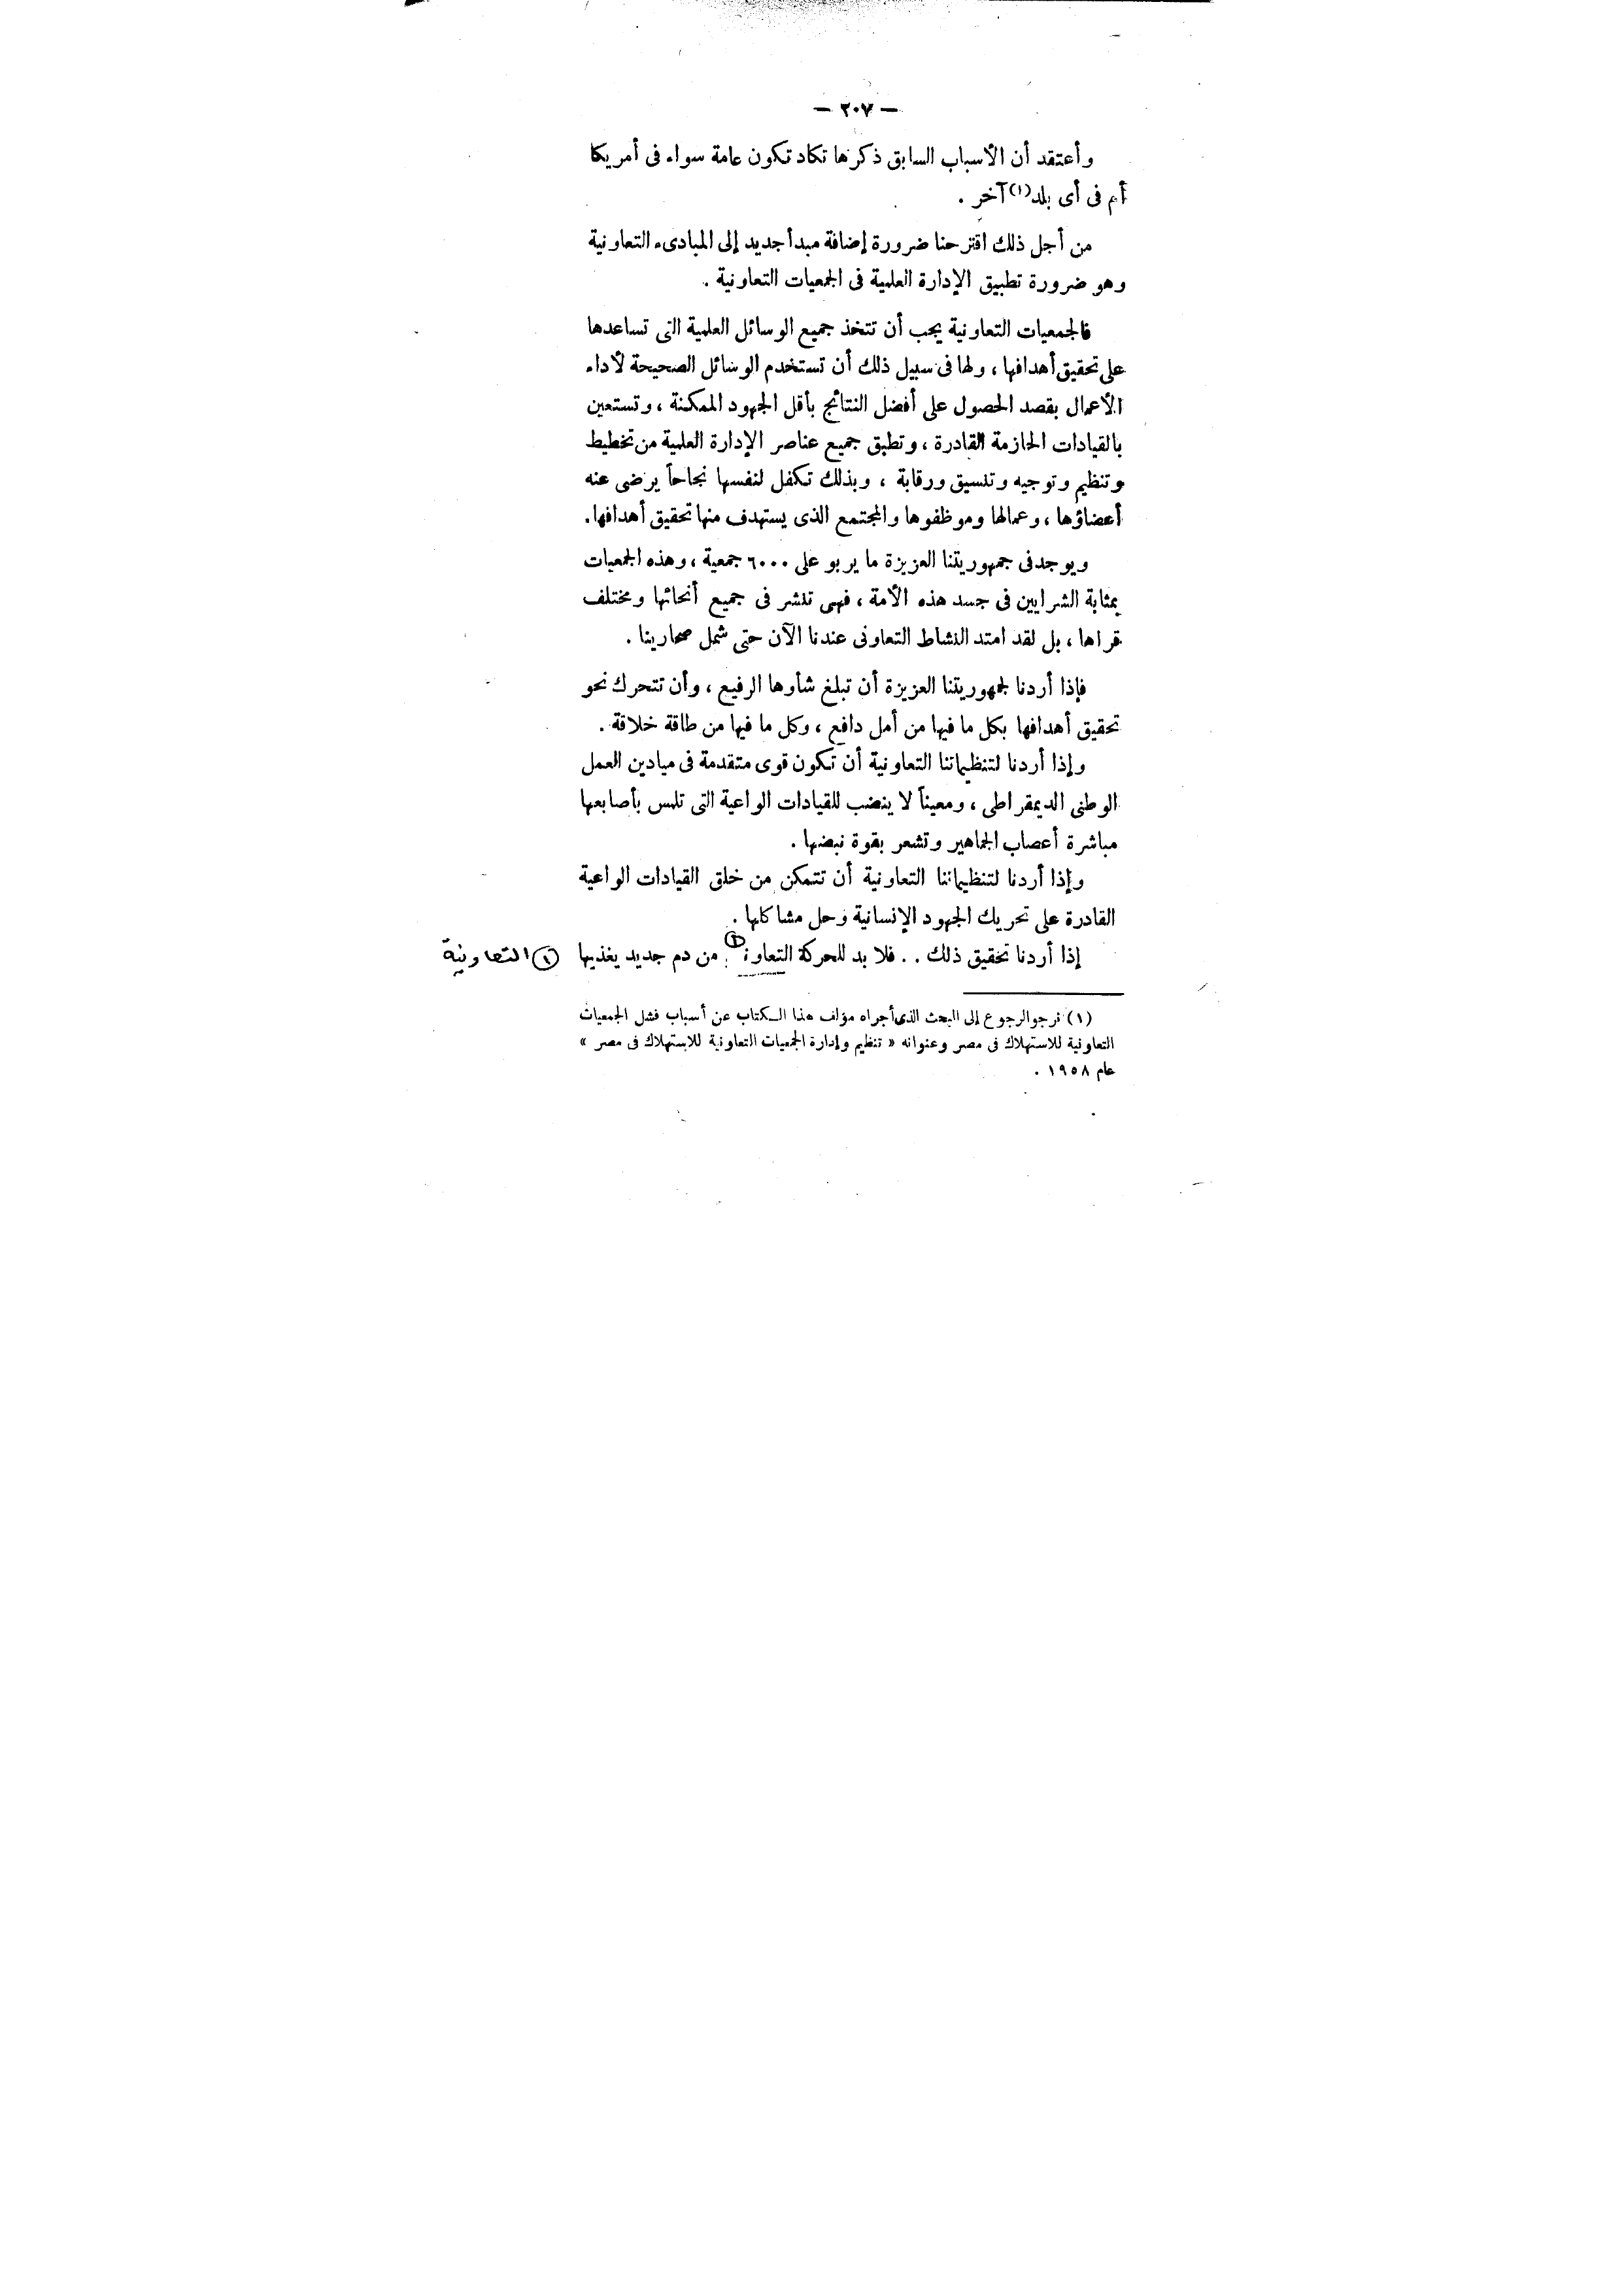 — ٢٠٧ —
وأعتقد أن الأسباب السابق ذكرها تكاد تكون عامة سواء فى أمريكا
أم فى أى بلد(١) آخر .
من أجل ذلك اقترحنا ضرورة إضافة مبدأ جديد إلى المبادىء التعاونية
وهو ضرورة تطبيق الإدارة العلمية فى الجمعيات التعاونية .
فالجمعيات التعاونية يجب أن تتخذ جميع الوسائل العلمية التى تساعدها
على تحقيق أهدافها ، ولها فى سبيل ذلك أن تستخدم الوسائل الصحيحة لأداء
الأعمال بقصد الحصول على أفضل النتائج بأقل الجهود الممكنة ، وتستعين
بالقيادات الحازمة القادرة ، وتطبق جميع عناصر الإدارة العلمية من تخطيط
وتنظيم وتوجيه وتنسيق ورقابة ، وبذلك تكفل لنفسها نجاحاً يرضى عنه
أعضاؤها ، وعمالها وموظفوها والمجتمع الذى يستهدف منها تحقيق أهدافها .
ويوجد فى جمهوريتنا العزيزة ما يربو على ٦٠٠٠ جمعية ، وهذه الجمعيات
بمثابة الشرايين فى جسد هذه الأمة ، فهى تنشر فى جميع أنحائها ومختلف
قراها ، بل لقد امتد النشاط التعاونى عندنا الآن حتى شمل صحارينا .
فإذا أردنا لجمهوريتنا العزيزة أن تبلغ شأوها الرفيع ، وأن تتحرك نحو
تحقيق أهدافها بكل ما فيها من أمل دافع ، وكل ما فيها من طاقة خلاقة .
وإذا أردنا لتنظيماتنا التعاونية أن تكون قوى متقدمة فى ميادين العمل
الوطنى الديمقراطى ، ومعيناً لا ينضب للقيادات الواعية التى تلمس بأصابعها
مباشرة أعصاب الجماهير وتشعر بقوة نبضها .
وإذا أردنا لتنظيماتنا التعاونية أن تتمكن من خلق القيادات الواعية
القادرة على تحريك الجهود الإنسانية وحل مشاكلها .
إذا أردنا تحقيق ذلك . . فلا بد للحركة التعاونـ ① من دم جديد يغذيها ① التعاونية
(١) نرجو الرجوع إلى البحث الذى أجراه مؤلف هذا الكتاب عن أسباب فشل الجمعيات
التعاونية للاستهلاك فى مصر وعنوانه « تنظيم وإدارة الجمعيات التعاونية للاستهلاك فى مصر »
عام ١٩٥٨ .